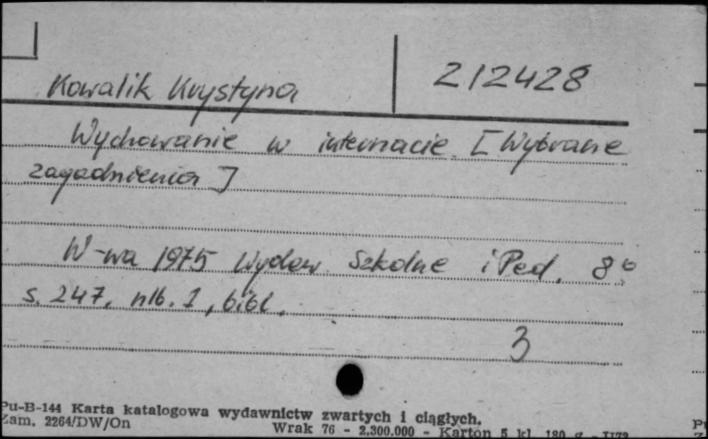 Kowalik Krystyna
212428
Wychowanie w internacie. [Wybrane
zagadnienia]
W-wa 1975 Wydaw. Szkolne i Ped. 8°
s. 247, nlb. 1, bibl.
3
Pu-B-144 Karta katalogowa wydawnictw zwartych i ciągłych.
Zam. 2264/DW/On
Wrak 76 - 2.300.000 - Karton 5 kl. 180 g.